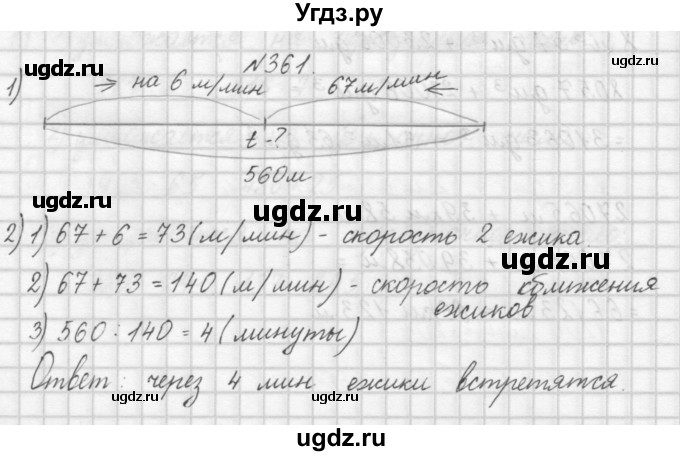 Угдз.ру
№361.
1) → на 6 м/мин 67 м/мин ←
t - ?
560 м
2) 1) 67 + 6 = 73 (м/мин) - скорость 2 ежика
2) 67 + 73 = 140 (м/мин) - скорость сближения
ежиков
3) 560 : 140 = 4 (минуты)
Ответ: через 4 мин ежики встретятся.
ugdz.ru
ugdz.ru
ugdz.ru
ugdz.ru
ugdz.ru
ugdz.ru
ugdz.ru
ugdz.ru
ugdz.ru